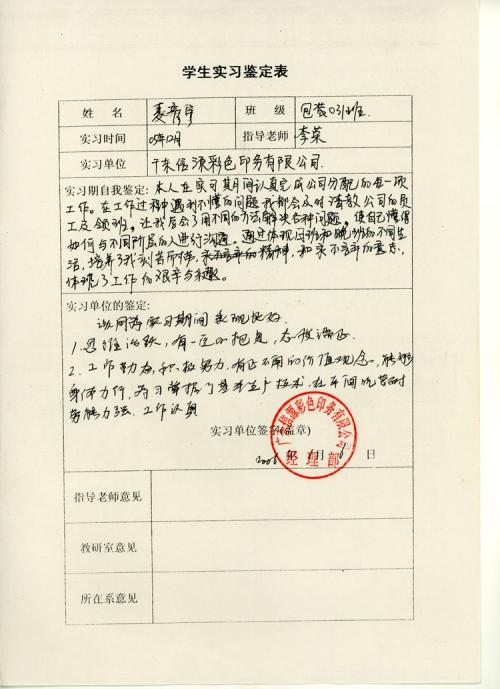 学生实习鉴定表
姓 名 夏彦宇 班 级 包装031班.
实习时间 05年12月 指导老师 李荣
实习单位 广东信源彩色印务有限公司.
实习期自我鉴定: 本人在实习期间认真完成公司分配的每一项
工作。在工作过程中遇到不懂的问题我都会及时请教公司的员
工及领班。让我学会了用不同的方法解决各种问题。使自己懂得
如何与不同阶层的人进行沟通。通过体现白班和晚班的不同生
活,培养了我刻苦耐劳,的精神,和
体现了工作的艰辛与乐趣。
实习单位的鉴定:
该同学实习期间表现比较好.
1.思维活跃,有一定的
2.工作勤奋,积极努力,有正确的价值观念,能够
身体力行,学习掌握了基本生产技术,在车间吃苦耐
劳能力强.工作认真
实习单位签字(盖章)
2006 年 1 月 6 日
广东信源彩色印务有限公司
经理部
指导老师意见
教研室意见
所在系意见